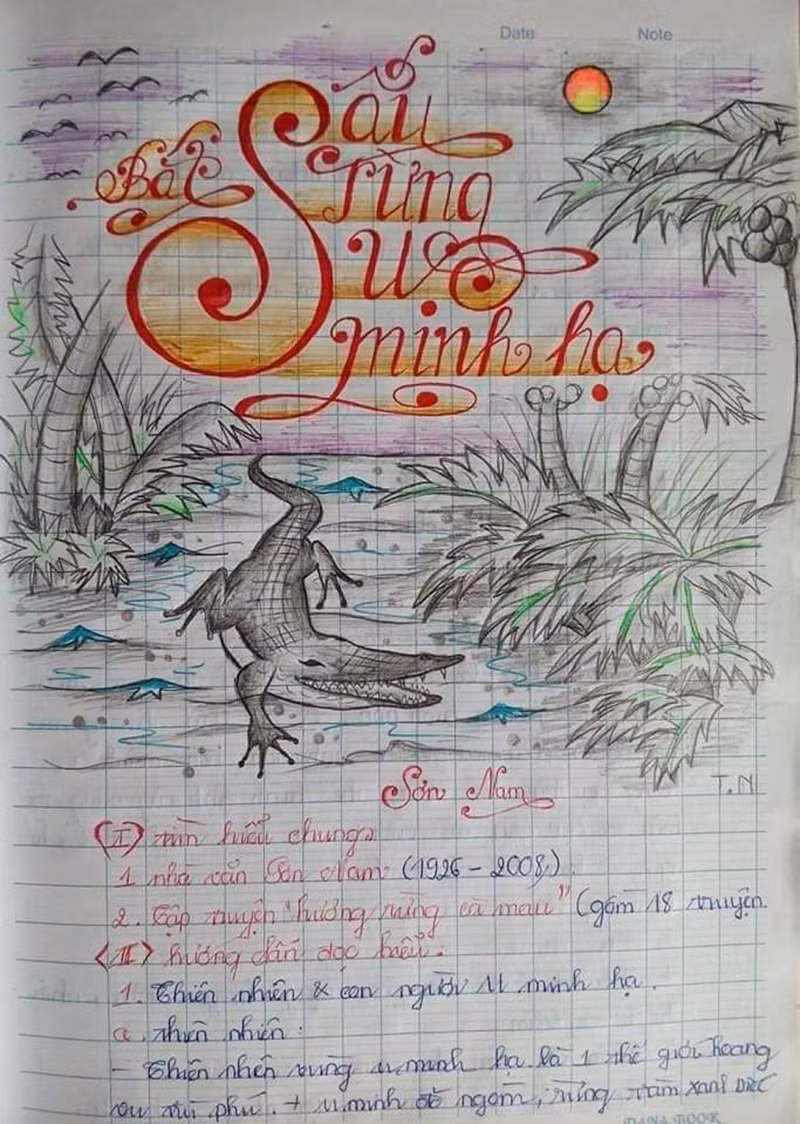 Date Note
Bắt Sấu
rừng
U
minh hạ
Sơn Nam
T.N
(I) tìm hiểu chung
1 nhà văn Sơn Nam (1926 - 2008)
2. Tập truyện "hương rừng cà mau" (gồm 18 truyện.
(II) hướng dẫn đọc hiểu:
1. Thiên nhiên & con người U minh hạ.
a. thiên nhiên:
- Thiên nhiên vùng u minh hạ là 1 thế giới hoang
phú. + U minh đỏ ngòm, rừng tràm xanh